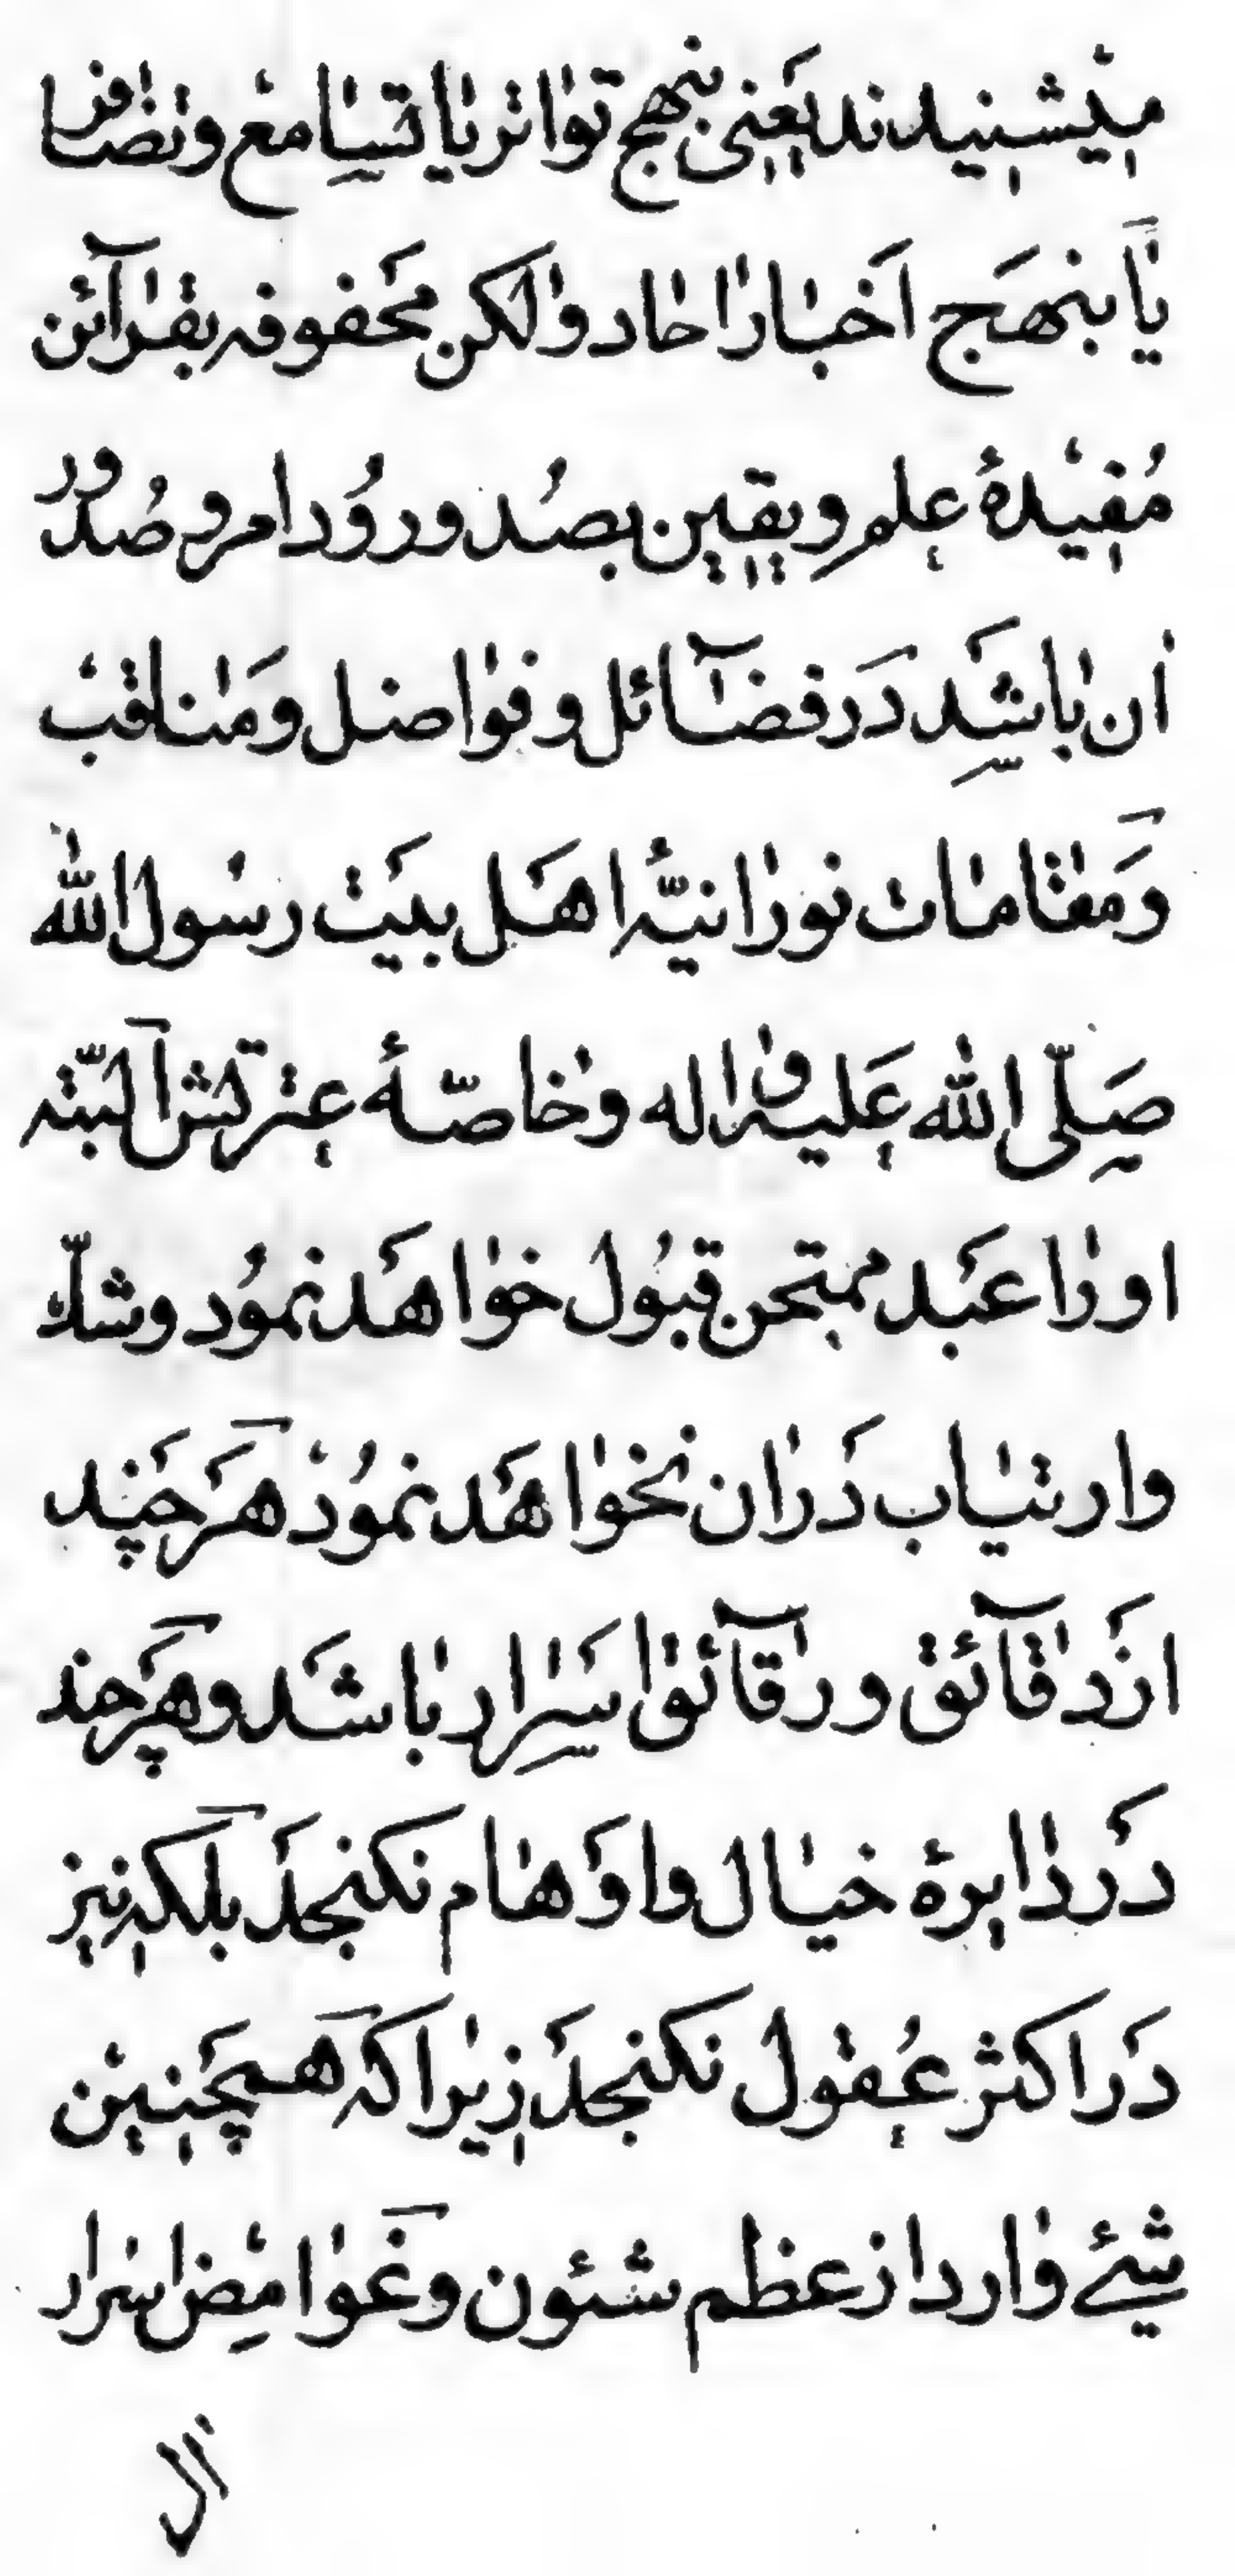 میشنیدند یعنی بنهج تواتر یا تسامع وتضافر
یا بنهج اخبار احاد ولکن محفوفه بقرآئن
مفیدهٔ علم ویقین بصدور ورود امر وصدور
ان باشد در فضآئل وفواضل ومناقب
ومقامات نورانیّهٔ اهل بیت رسول الله
صلّی الله علیه واله وخاصّهٔ عترتش البتّه
اورا عبد ممتحن قبول خواهد نمود وشکّ
وارتیاب دران نخواهد نمود هرچند
از دقآئق ورقآئق اسرار باشد وهرچند
در دایرهٔ خیال واوهام نکنجد بلکه نیز
در اکثر عقول نکنجد زیرا که همچنین
شیئے وارد از عظم شئون وغوامض اسرار
ال